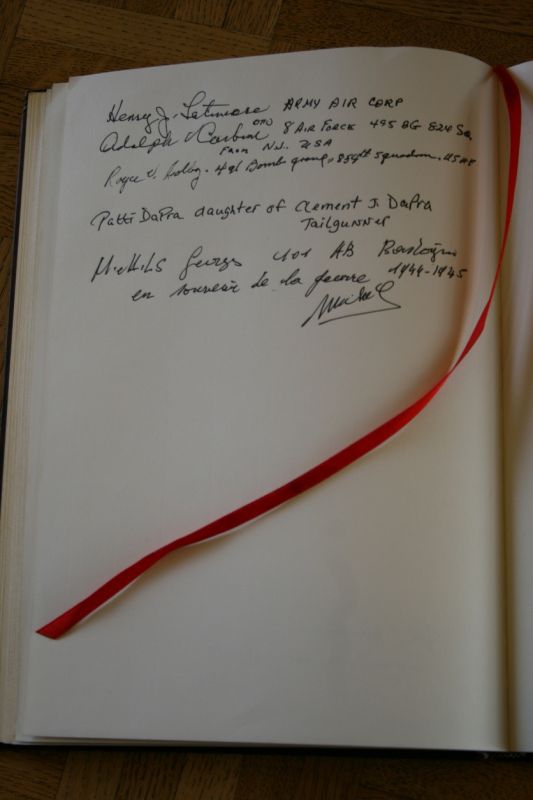 Henry J. Latimore ARMY AIR CORP
Adolph Carbin OTTO 8 AIR FORCE 495 BG 824 Sq.
FROM N.J. USA
Roger V. 491 Bomb group, 854th squadron. USAF
Patti DaPra daughter of Clement J. DaPra
Tailgunner
Georges 101 AB Bastogne
en souvenir de la guerre 1944-1945